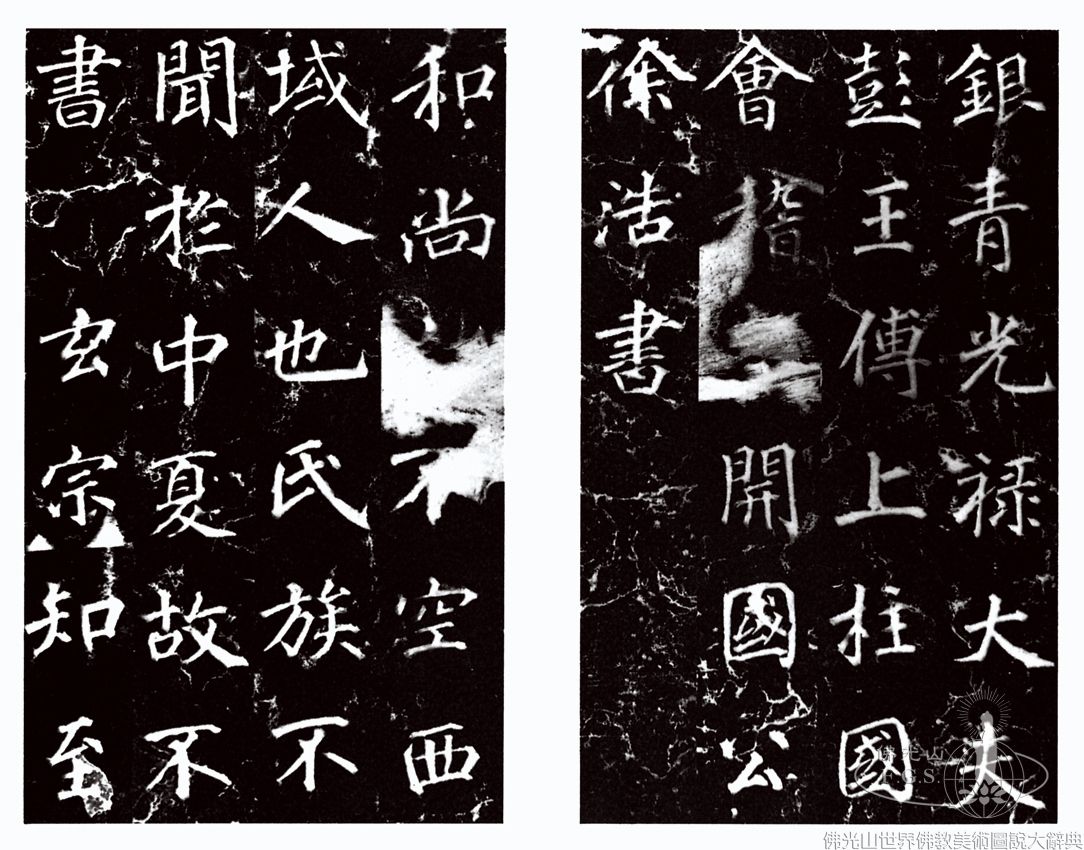 銀青光祿大夫
彭王傅上柱國
會稽開國公
徐浩書
和尚不空西
域人也氏族不
聞於中夏故不
書玄宗知至
佛光山
F.G.S.
佛光山世界佛教美術圖說大辭典